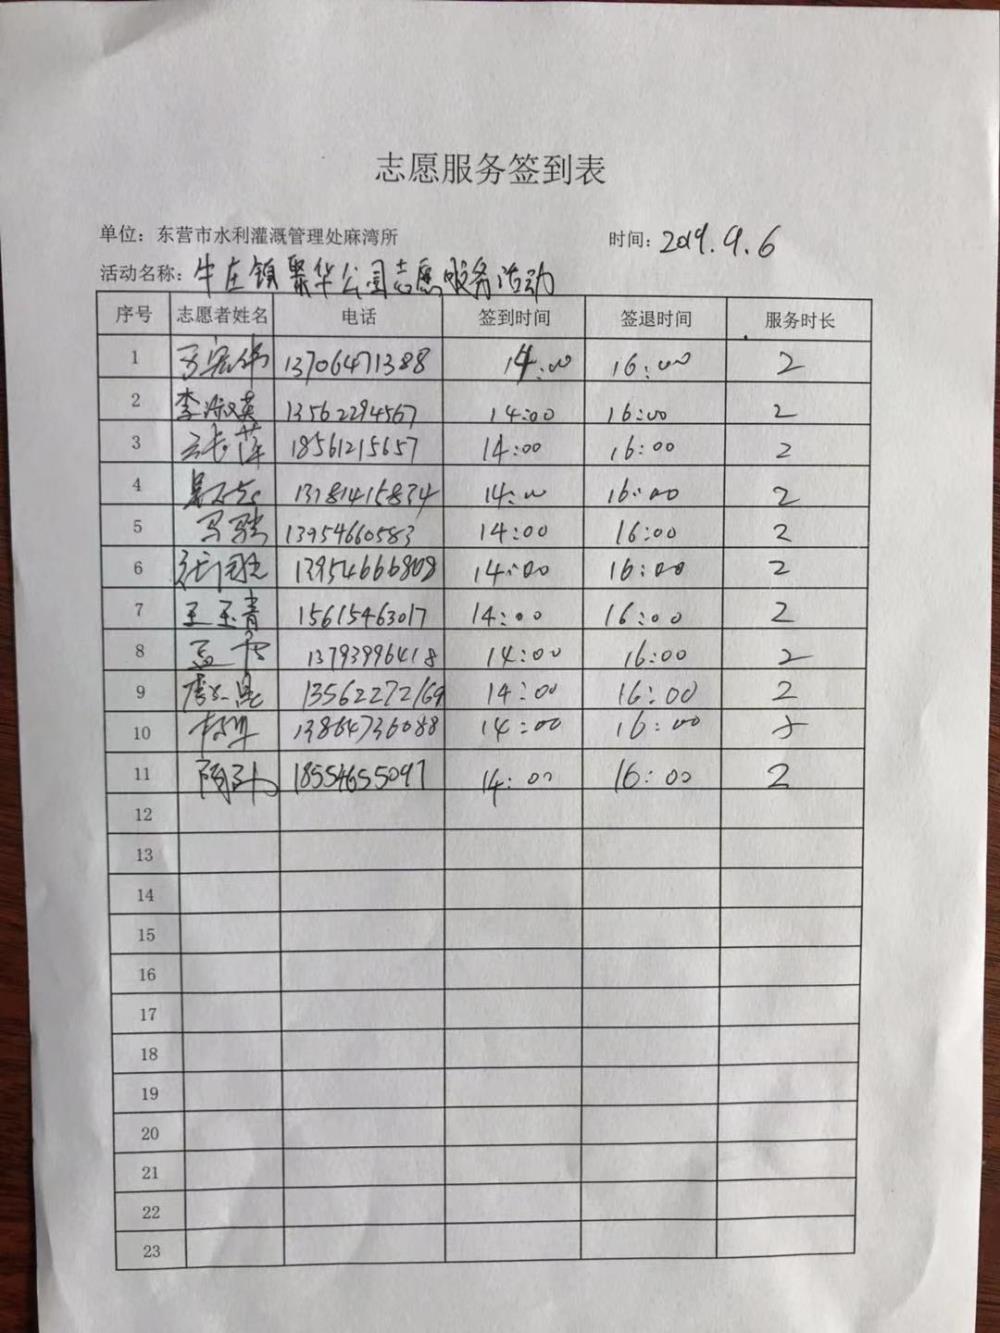 志愿服务签到表
单位：东营市水利灌溉管理处麻湾所 时间：2019.9.6
活动名称：牛庄镇聚华公司志愿服务活动
序号 志愿者姓名 电话 签到时间 签退时间 服务时长
1 13706471388 14:00 16:00 2
2 李淑英 13562294567 14:00 16:00 2
3 张萍 18561215657 14:00 16:00 2
4 14:00 16:00 2
5 马骏 13954660583 14:00 16:00 2
6 14:00 16:00 2
7 王玉青 15615463017 14:00 16:00 2
8 13793996418 14:00 16:00 2
9 13562272169 14:00 16:00 2
10 13864736088 14:00 16:00
11 18554655097 14:00 16:00 2
12
13
14
15
16
17
18
19
20
21
22
23